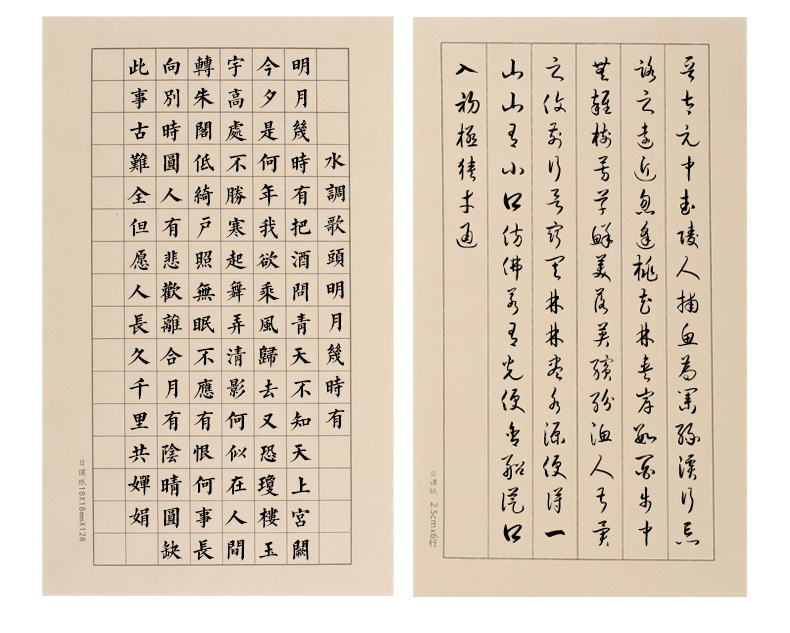 水調歌頭明月幾時有
明月幾時有把酒問青天不知天上宮闕
今夕是何年我欲乘風歸去又恐瓊樓玉
宇高處不勝寒起舞弄清影何似在人間
轉朱閣低綺戶照無眠不應有恨何事長
向別時圓人有悲歡離合月有陰晴圓缺
此事古難全但愿人長久千里共嬋娟
日课纸18X18mmX128
晉太元中武陵人捕魚為業緣溪行忘
路之遠近忽逢桃花林夾岸數百步中
無雜樹芳草鮮美落英繽紛漁人甚異
之復前行欲窮其林林盡水源便得一
山山有小口仿佛若有光便舍船從口
入初極狹才通
日课纸 2.5cmx6行